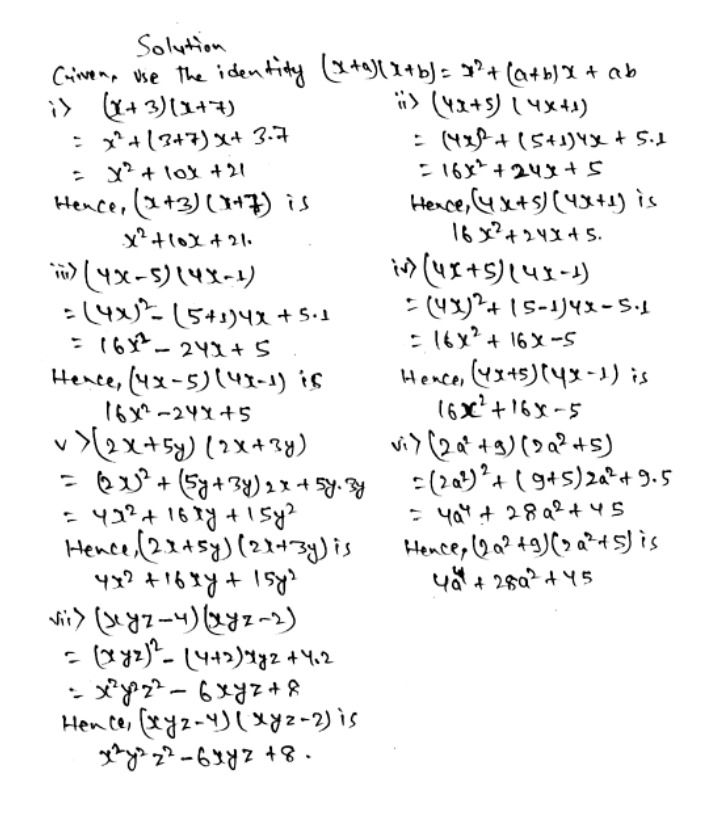 Solution
Given, use the identity (x+a)(x+b) = x² + (a+b)x + ab
i> (x+3)(x+7)
= x² + (3+7)x + 3.7
= x² + 10x + 21
Hence, (x+3)(x+7) is
x² + 10x + 21.
ii> (4x+5)(4x+1)
= (4x)² + (5+1)4x + 5.1
= 16x² + 24x + 5
Hence, (4x+5)(4x+1) is
16x² + 24x + 5.
iii> (4x-5)(4x-1)
= (4x)² - (5+1)4x + 5.1
= 16x² - 24x + 5
Hence, (4x-5)(4x-1) is
16x² - 24x + 5
iv> (4x+5)(4x-1)
= (4x)² + (5-1)4x - 5.1
= 16x² + 16x - 5
Hence, (4x+5)(4x-1) is
16x² + 16x - 5
v> (2x+5y)(2x+3y)
= (2x)² + (5y+3y)2x + 5y.3y
= 4x² + 16xy + 15y²
Hence, (2x+5y)(2x+3y) is
4x² + 16xy + 15y²
vi> (2a²+9)(2a²+5)
= (2a²)² + (9+5)2a² + 9.5
= 4a⁴ + 28a² + 45
Hence, (2a²+9)(2a²+5) is
4a⁴ + 28a² + 45
vii> (xyz-4)(xyz-2)
= (xyz)² - (4+2)xyz + 4.2
= x²y²z² - 6xyz + 8
Hence, (xyz-4)(xyz-2) is
x²y²z² - 6xyz + 8.